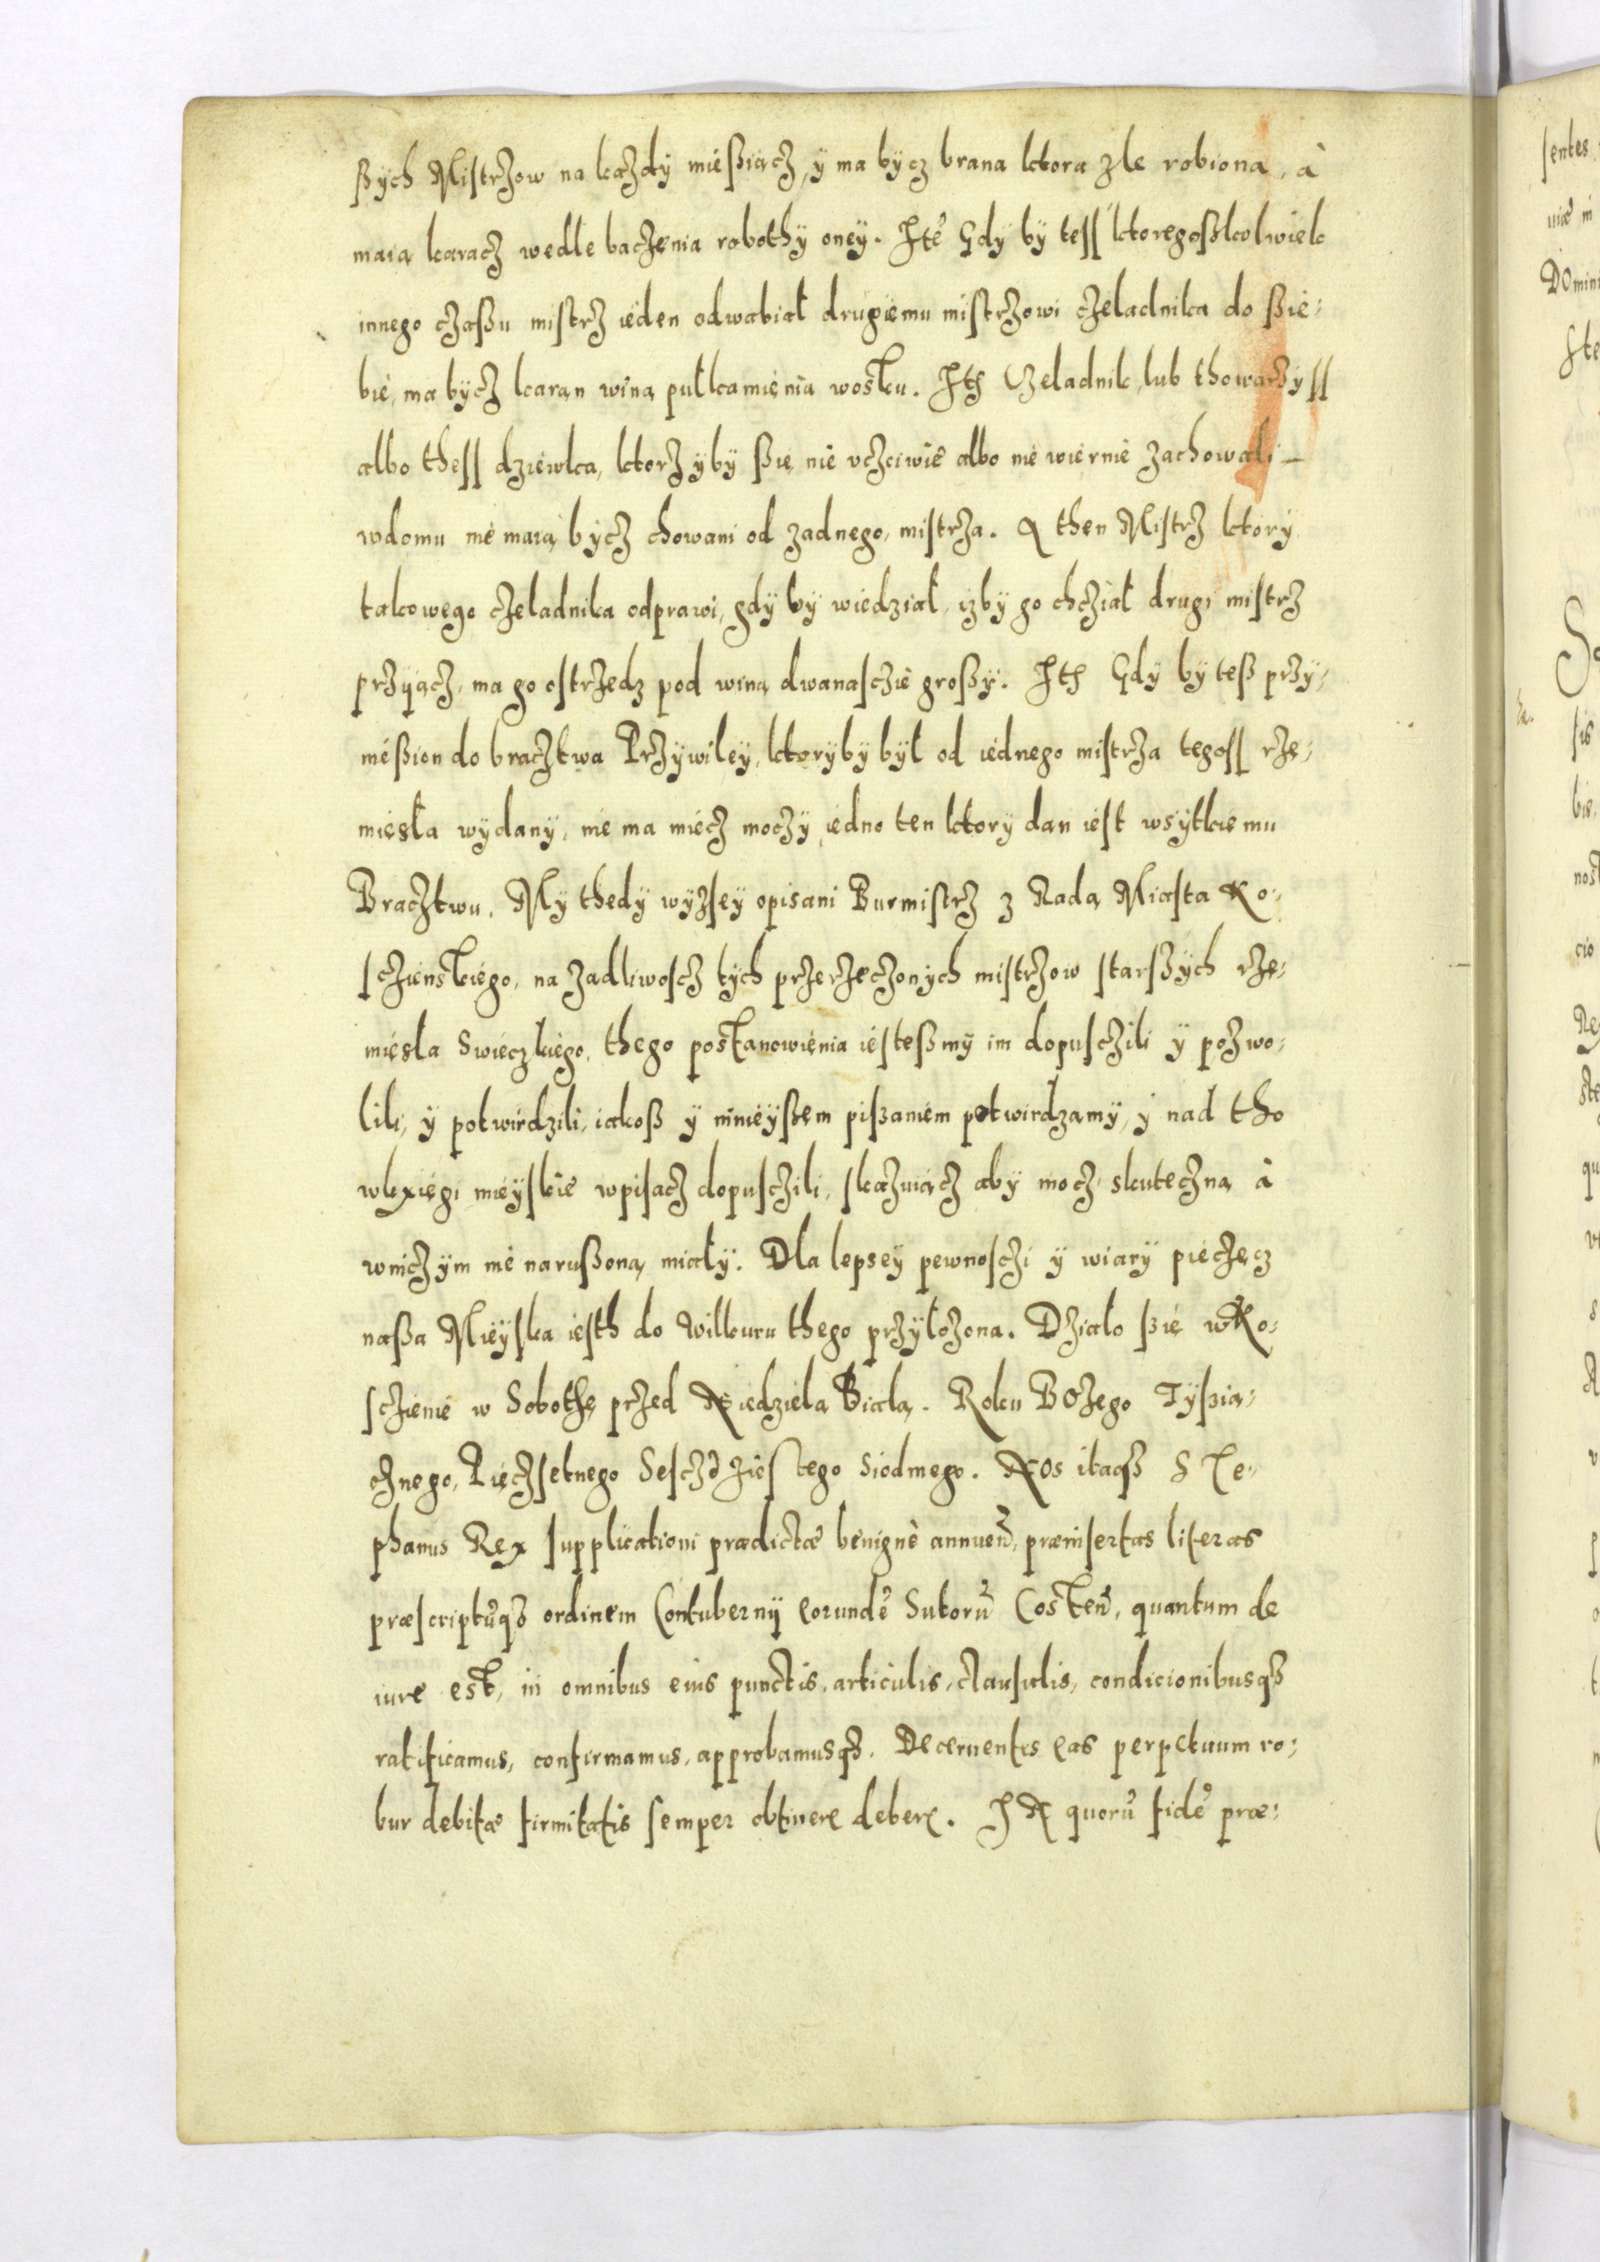 ßych Mistrzow na każdy mießiącz, y ma bycz brana ktora zle robiona, à
maią karacz wedle baczenia robothy oney. Itē Gdy by tess ktoregoßkolwiek
innego czaßu mistrz ieden odwabiał drugiemu mistrzowi czeladnika do ßie-
bie, ma bycz karan winą pułkamięnia wosku. Ith Czeladnik, lub thowarzyss
albo thess dziewka, ktorzyby ßię nie vczciwie albo nie wiernie zachowali —
wdomu nie maią bycz chowani od zadnego mistrza. A then Mistrz ktory
takowego czeladnika odprawi, gdy by wiedział, izby go chcział drugi mistrz
przyiącz, ma go ostrzedz pod winą dwanasczie großy. Ith Gdy by teß przy-
nießion do bracztwa Przywiley, ktoryby był od iednego mistrza tegoss rze-
miesła wydany, nie ma miecz moczy, iedno ten ktory dan iest wsytkiemu
Bracztwu. My thedy wyzsey opisani Burmistrz z Radą Miasta Ko-
sczienskiego, na żadliwoscz tych przerzeczonych mistrzow starßych rze-
miesla Swieczkiego, thego postanowienia iesteßmy im dopusczili y pozwo-
lili, y potwirdzili, iakoß y ninieyßem pißaniem potwirdzamy, y nad tho
wkxięgi mieyskie wpisacz dopusczili, skazuiącz aby mocz skuteczną à
wniczym nie narußoną miały. Dla lepsey pewnosczi y wiary pieczęcz
naßa Mieyska iesth do Wilkuru thego przyłożona. Działo ßie wKo-
sczienie w Sobothę przed Niedziela Białą. Roku Bożego Tyßią-
cznego, Pięczsetnego Sesczdziestego Siodmego. Nos itaqȝ Ste-
phanus Rex supplicationi prædictæ benignè annuen̄, præinsertas literas
præscriptūqȝ ordinem Contubernij eorundē Sutorū Costen̄, quantum de
iure est, in omnibus eius punctis, articulis, clausulis, condicionibusqȝ
ratificamus, confirmamus, approbamusqȝ. Decernentes eas perpetuum ro-
bur debitæ firmitatis semper obtinere debere. IN quorū fidē præ-